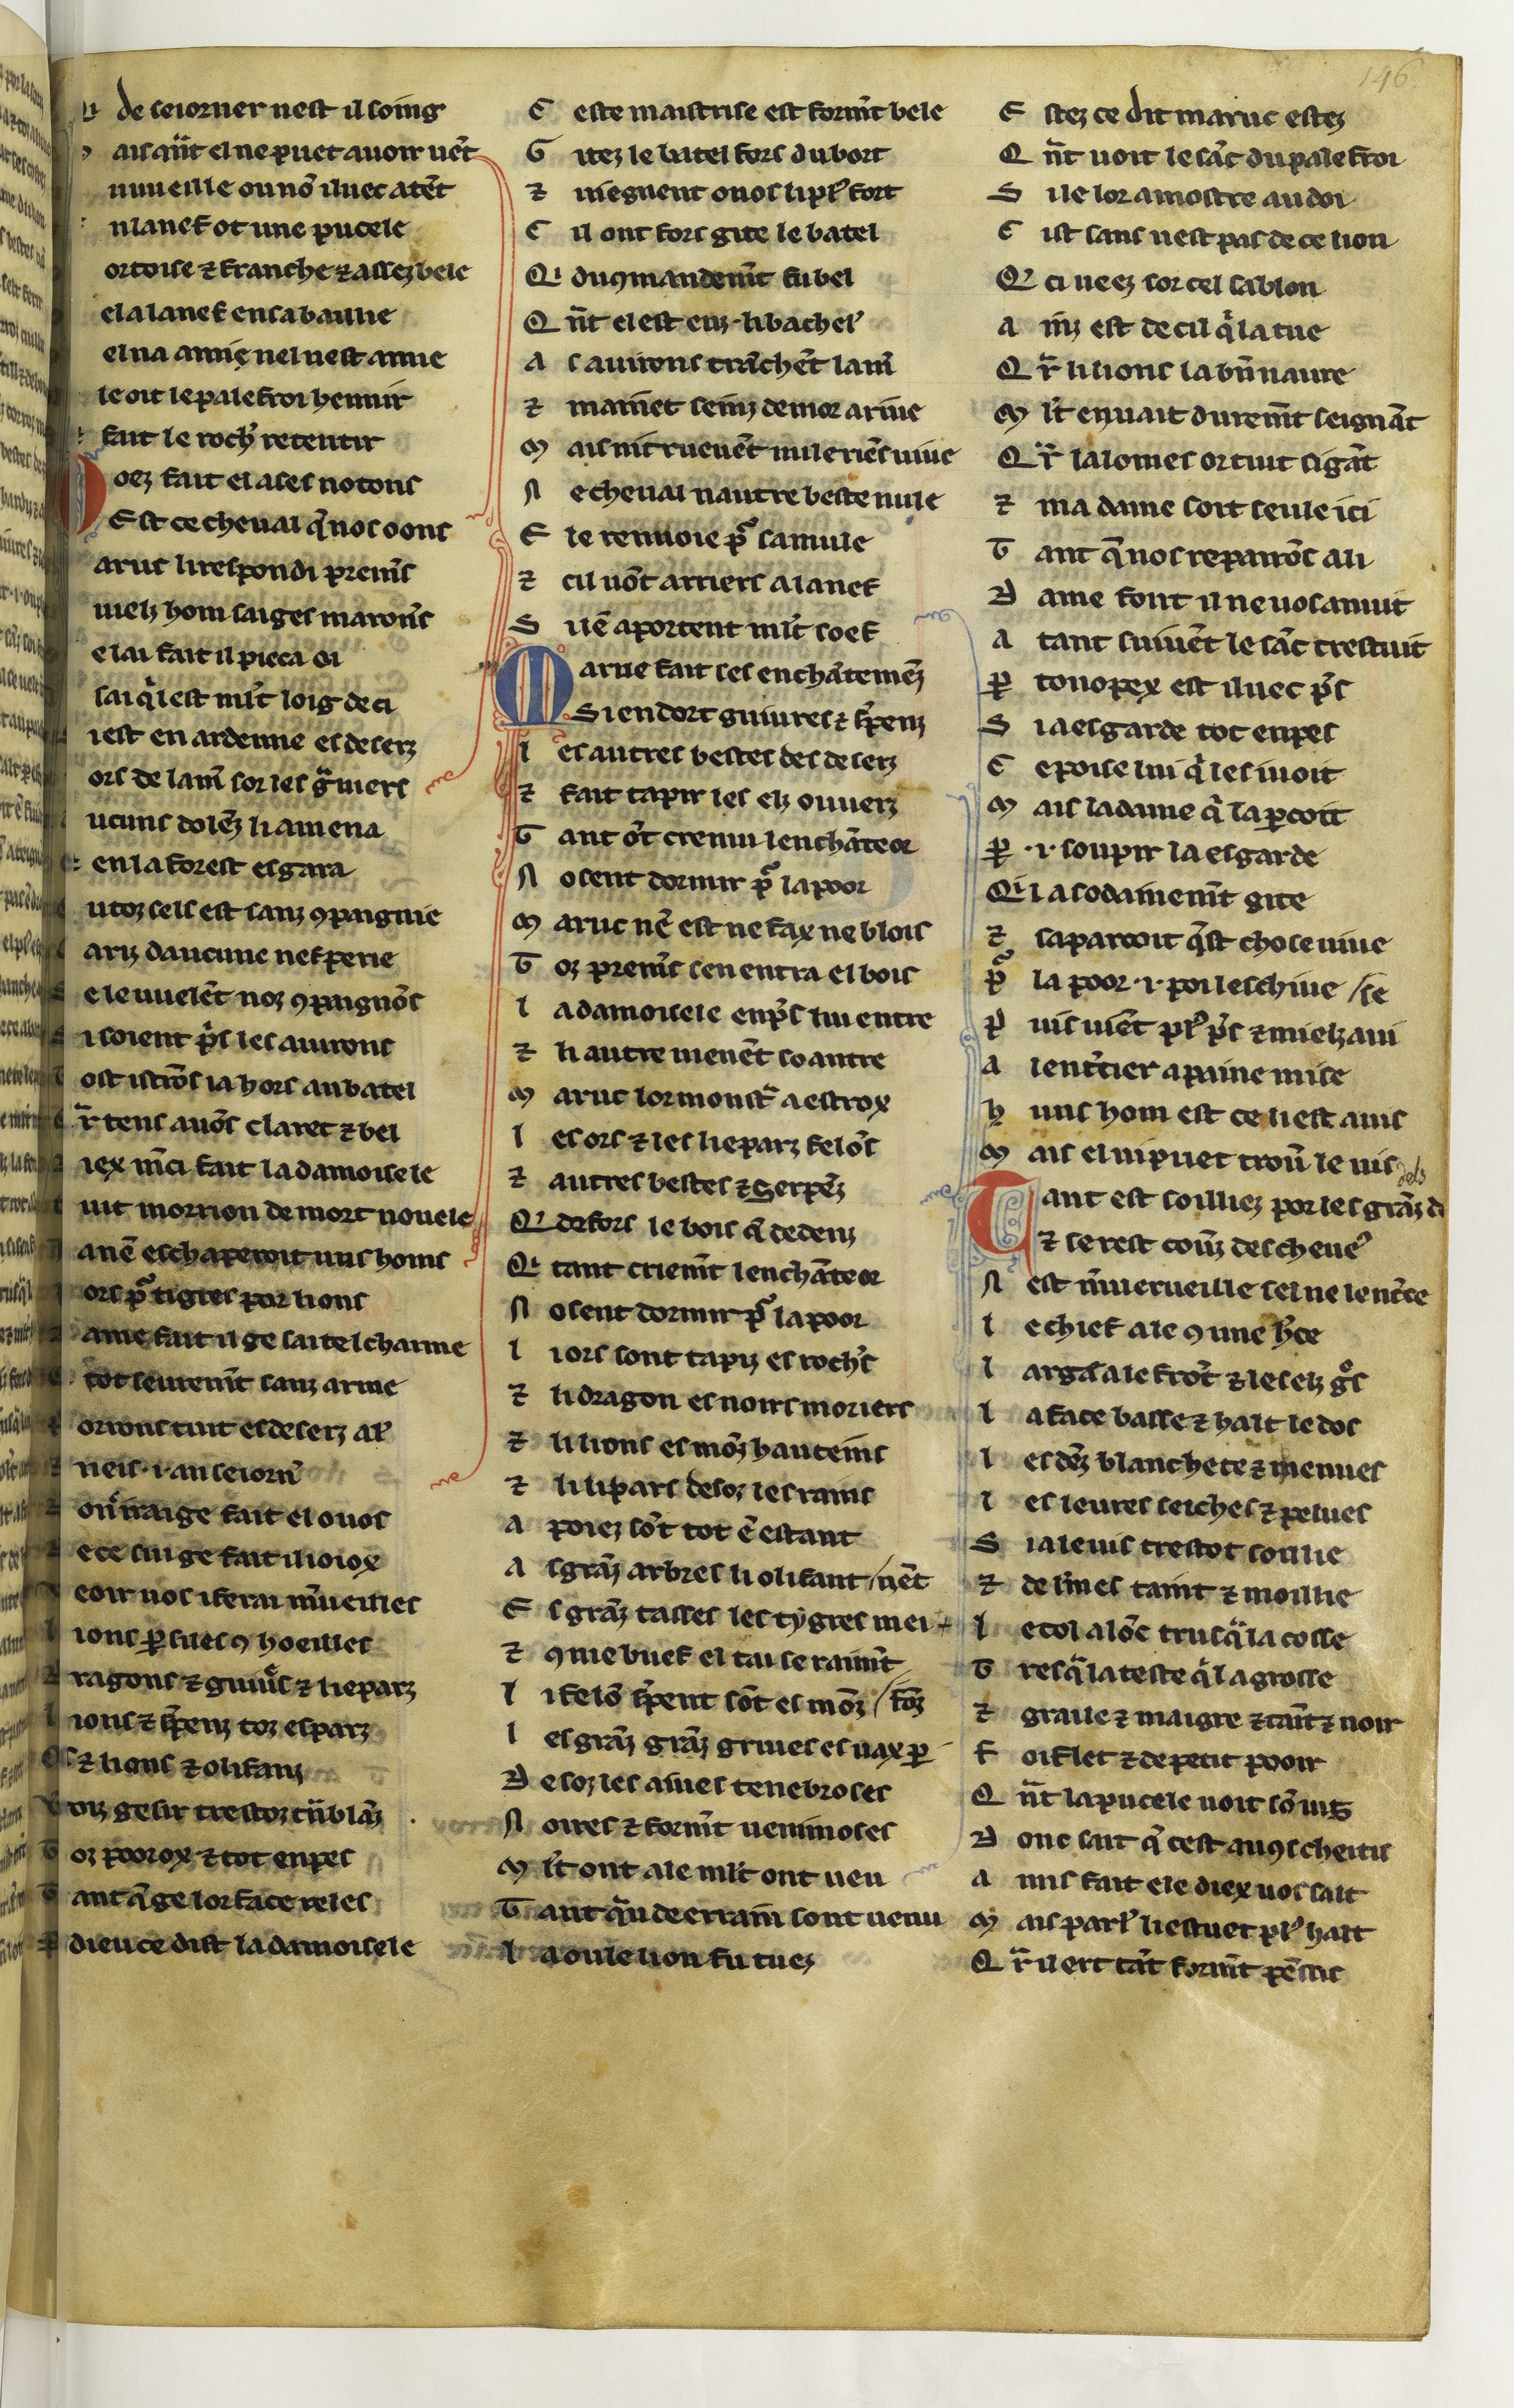 146
Qi de seiorner nest il soing
ais qñt el ne puet auoir uēt
uiuueille ou nō iluec atēt
n la nef ot une pucele
ortoise ⁊ franche ⁊ assez bele
el a la nef en sa baiuue
el na amie nel uest amie
le oit le palefroi hennir
fait le roch' retentir
Oez fait el a ses notons
Est ce cheual q̄ nos oons
arus li respondi prem̄s
uielz hom saiges marōns
e lai fait il pieca oi
sai q̇l est ml't loig de ci
i est en ardenne es deserz
ors de lam̄ sor les g̃uiers
ucuns dolēz li amena
en la forest esgara
utoz sels est sanz ꝯpaignie
ariz daucune nef perie
e le uuelēt noz ꝯpaignōs
i soient p̄s les auirons
ost istrōs ia hors au batel
r̃ tens auōs claret ⁊ bel
iex m̄ci fait la damoisele
uit morrion de mort nouele
a nē eschaperoit nus homs
ors pͦ tigres por lions
ame fait il ge sai tel charme
tot seurem̄t sanz arme
orrons tuit es deserz al'
neis ·i· an seiorn̄
on i iraige fait el o uos
e ce sui ge fait il ioiox
eoir uos i ferai m̄ueilles
ions ꝑ sues ꝯ hoeilles
ragons ⁊ guiur̃s ⁊ lieparz
ions ⁊ sꝑenz toz esparz
Ors ⁊ lions ⁊ olifanz
oiz gesir trestoz tñblāz
Toz poorox ⁊ tot enpes
Tant q̄ ge lor face reles
P dieu ce dist la damoisele
C este maistrise est form̄t bele
G itez le batel fors du bort
⁊ uiegnent o uos li pl' fort
C il ont fors gite le batel
Qi du ꝯmandem̄t fu bel
Q ñt el est enz · li bachel'
A s auirons trāchēt lam̄
⁊ mainet seinz demorariue
M ais ni truuēt nule riēs uiue
N e cheual nautre beste nule
E le renuoie pͦ sa mule
⁊ cil uōt arriers a la nef
S uē aportent ml't soef
Marue fait ses enchātemēz
Si endort guiures ⁊ sꝑenz
L es autres bestes des deserz
⁊ fait tapir les elz ouuerz
T ant ōt cremu lenchāteor
N osent dormir pͦ la poor
M arus nē est ne fax ne blois
T oz prem̄s sen entra el bois
L a damoisele enp̄s lui entre
⁊ li autre uienēt soantre
M arus lor monst̃ a estrox
L es ors ⁊ les lieparz felōs
⁊ autres bestes ⁊ Serpēz
Qi defors le bois q̄ dedenz
Qi tant criem̄t lenchāteor
N osent dormir pͦ la poor
L i ors sont tapiz es roch's
⁊ li dragon es noirs moriers
⁊ li lions es mōz hauteins
⁊ li lipars desoz les rains
A poiez sōt tot ē estant
A s grāz arbres li olifant / nēt
E s grāz tasses les tygres mei
⁊ ꝯ uie buef el tai se raim̄t
L i felō sꝑent sōt es mōz / fōz
L es grāz grāz griues es uax ꝑ
D esoz les aiues tenebroses
N oires ⁊ form̄t uenimoses
M l't ont ale ml't ont ueu
T ant q̃ ude errain sont uenu
L a ou le lion fu tuez
E stez ce dit marus estez
Q ñt uoit le sāc du palefroi
S i le lor a mostre au doi
C ist sans nest pas de ce lion
Qi ci ueez sor cel sablon
A inz est de cil q̇ la tue
Q r̃ li lions la bn̄ naure
M l't en uait durem̄t seignāt
Q r̃ lalomes or tuit sigāt
⁊ ma dame soit seule ici
T ant q̄ nos repairōs a li
D ame font il ne uos anuit
A tant siuuēt le sāc trestuit
P touopex est iluec p̄s
S i a esgarde tot enpes
C e poise lui q̇ les i uoit
M ais la dame q̇ laꝑcoit
P ·i· soupir la esgarde
Qi la sodainem̄t gite
⁊ saparcoit q̄st chose uiue
P la poor ·i· poi leschiue / se
P uis uiēt pl' p̄s ⁊ mielz aui
A lent̄cier a paine mise
H uns hom est ce li est auis
M ais el ni puet trou̇ le uis
Tant est soilliez por les grāz dels
⁊ se rest couz̄ des cheue'
N est m̄uerueille sel ne lent̄ce
L e chief ale ꝯ une h̄ce
L args ale frōt ⁊ les elz gͦs
L a face basse ⁊ halt le dos
L es dēz blanchete ⁊ menues
L es leures seiches ⁊ pelues
S i a le uis trestot soillie
⁊ de lm̄es taint ⁊ moillie
L e col a lōc trusq̃ la cosse
T resq̃ la teste q̇l a grosse
⁊ graile ⁊ maigre ⁊ taīt ⁊ noir
F oiflet ⁊ de petit pooir
Q ñt la pucele uoit sō uis
D onc sait q̄ cest auꝯs cheitis
A mis fait ele diex uos salt
M ais parl' li estuet pl' halt
Q r̃ il ert tāt form̄t pēssis